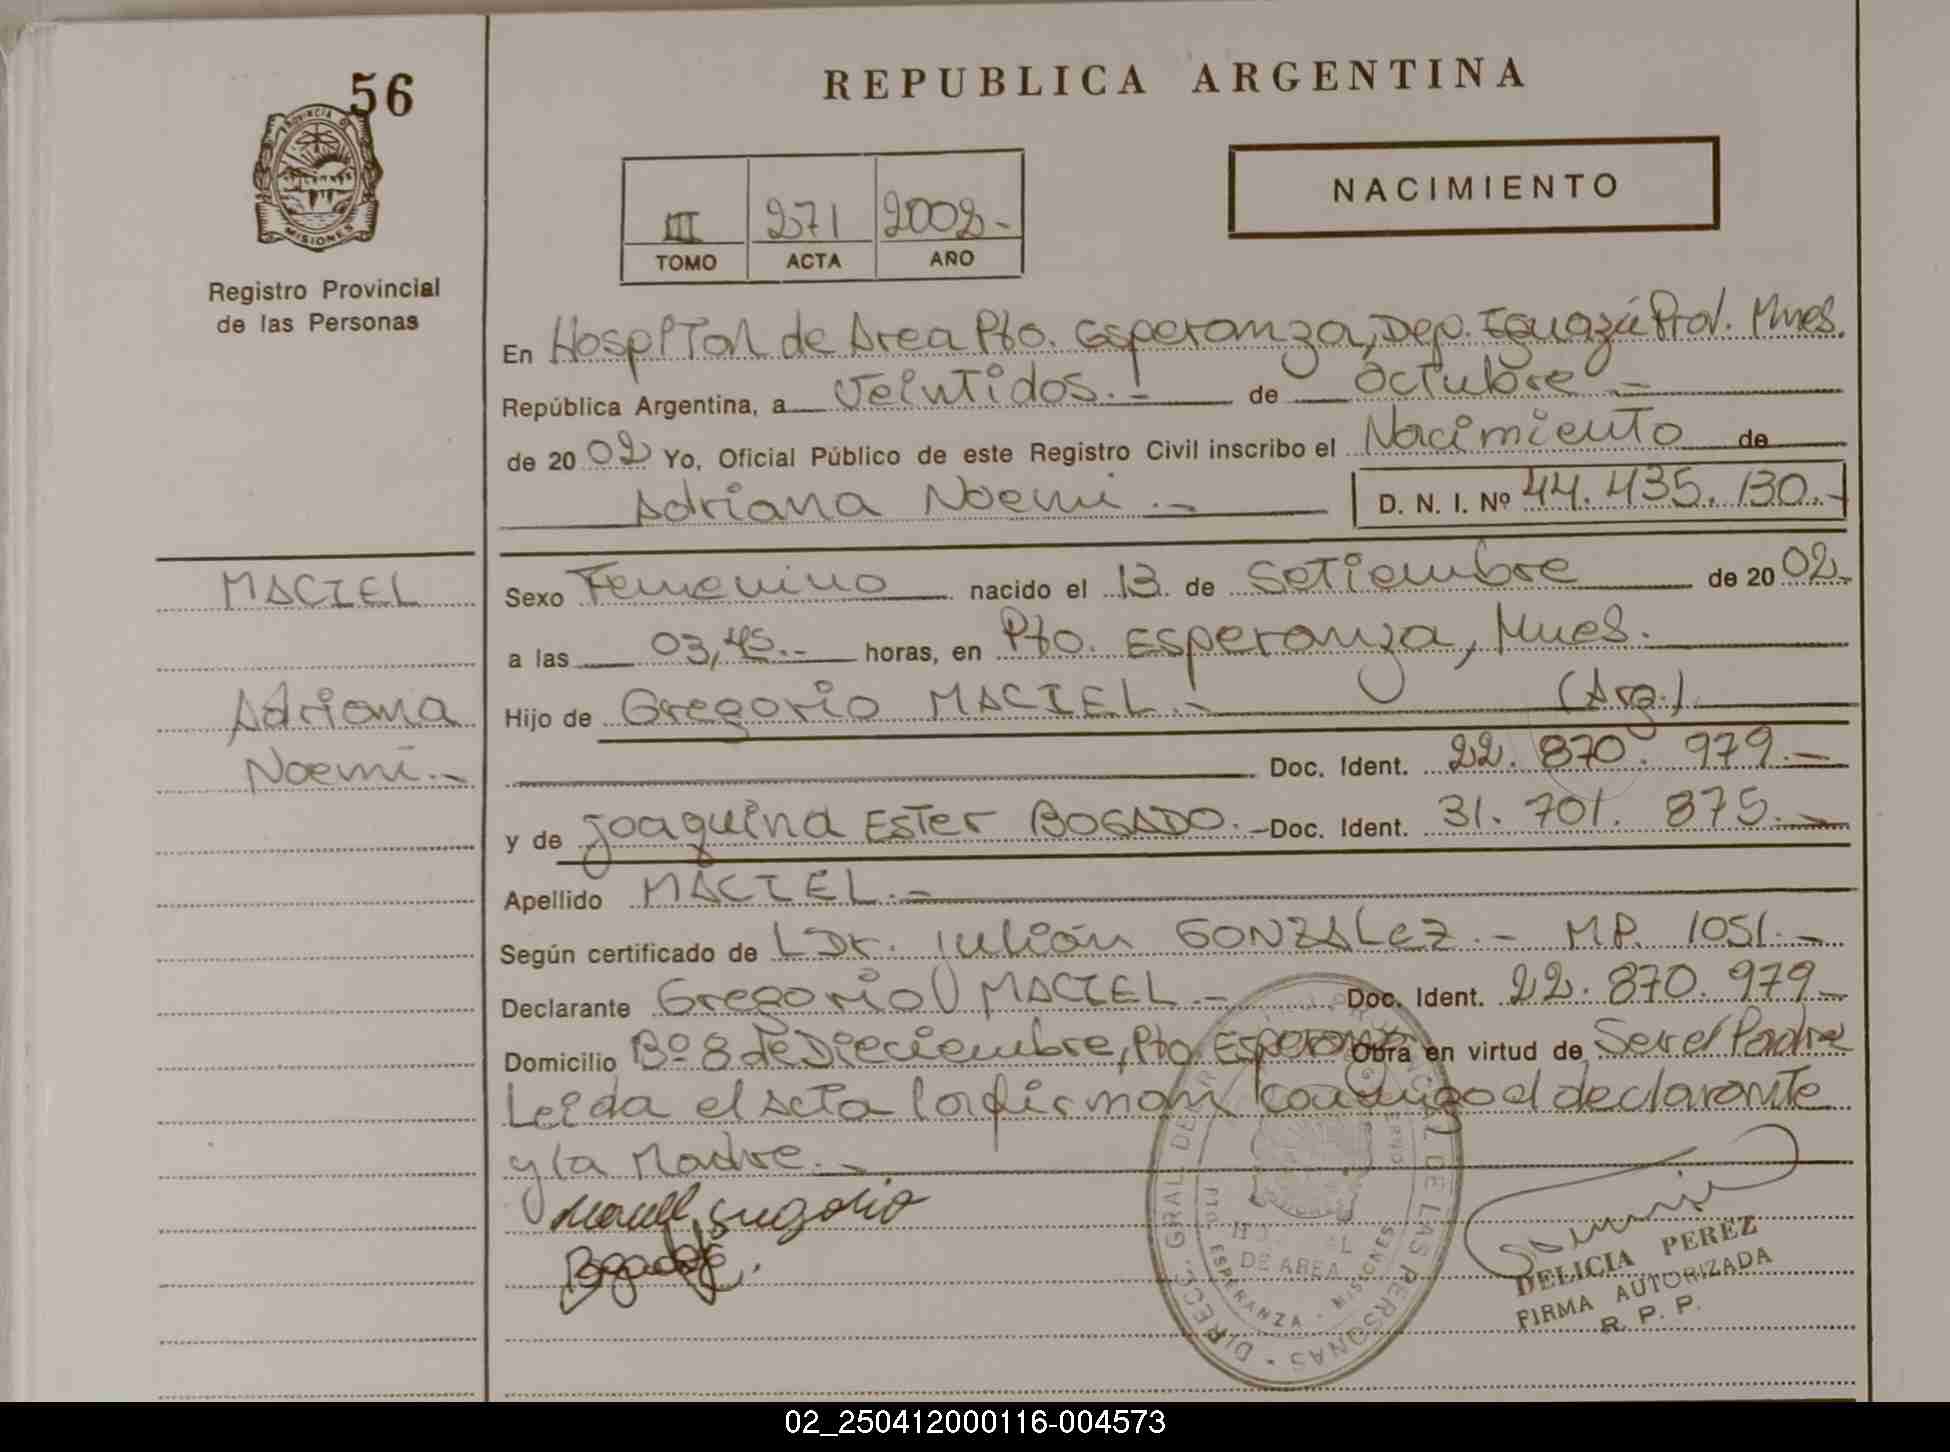 56
PROVINCIA DE
MISIONES
Registro Provincial
de las Personas
REPUBLICA ARGENTINA
NACIMIENTO
III 271 2002-
TOMO ACTA AÑO
En Hospital de Area Pto. Esperanza, Dep. Iguazú Prov. Mnes.
República Argentina, a Veintidos.- de Octubre -
de 20 02 Yo, Oficial Público de este Registro Civil inscribo el Nacimiento de
Adriana Noemi - D. N. I. Nº 44.435.130.-
MACIEL
Adriana
Noemi.-
Sexo Femenino nacido el 13 de Setiembre de 20 02-
a las 03,45.- horas, en Pto. Esperanza, Mnes.
Hijo de Gregorio MACIEL.- (Arg.)
Doc. Ident. 22.870.979.-
y de Joaquina Ester BOGADO.- Doc. Ident. 31.701.875.-
Apellido MACIEL.-
Según certificado de Dr. Julián GONZALEZ.- MP. 1051.-
Declarante Gregorio MACIEL.- Doc. Ident. 22.870.979-
Domicilio Bº 8 de Dieciembre, Pto. Esperanza Obra en virtud de Ser el Padre
Leida el Acta la firman conmigo el declarante
y la Madre.-
Maciel Gregorio
Bogado
DIRECC. GRAL. DE LAS PERSONAS
DE AREA
ESPERANZA - MISIONES
DELICIA PEREZ
FIRMA AUTORIZADA
R. P. P.
02_250412000116-004573